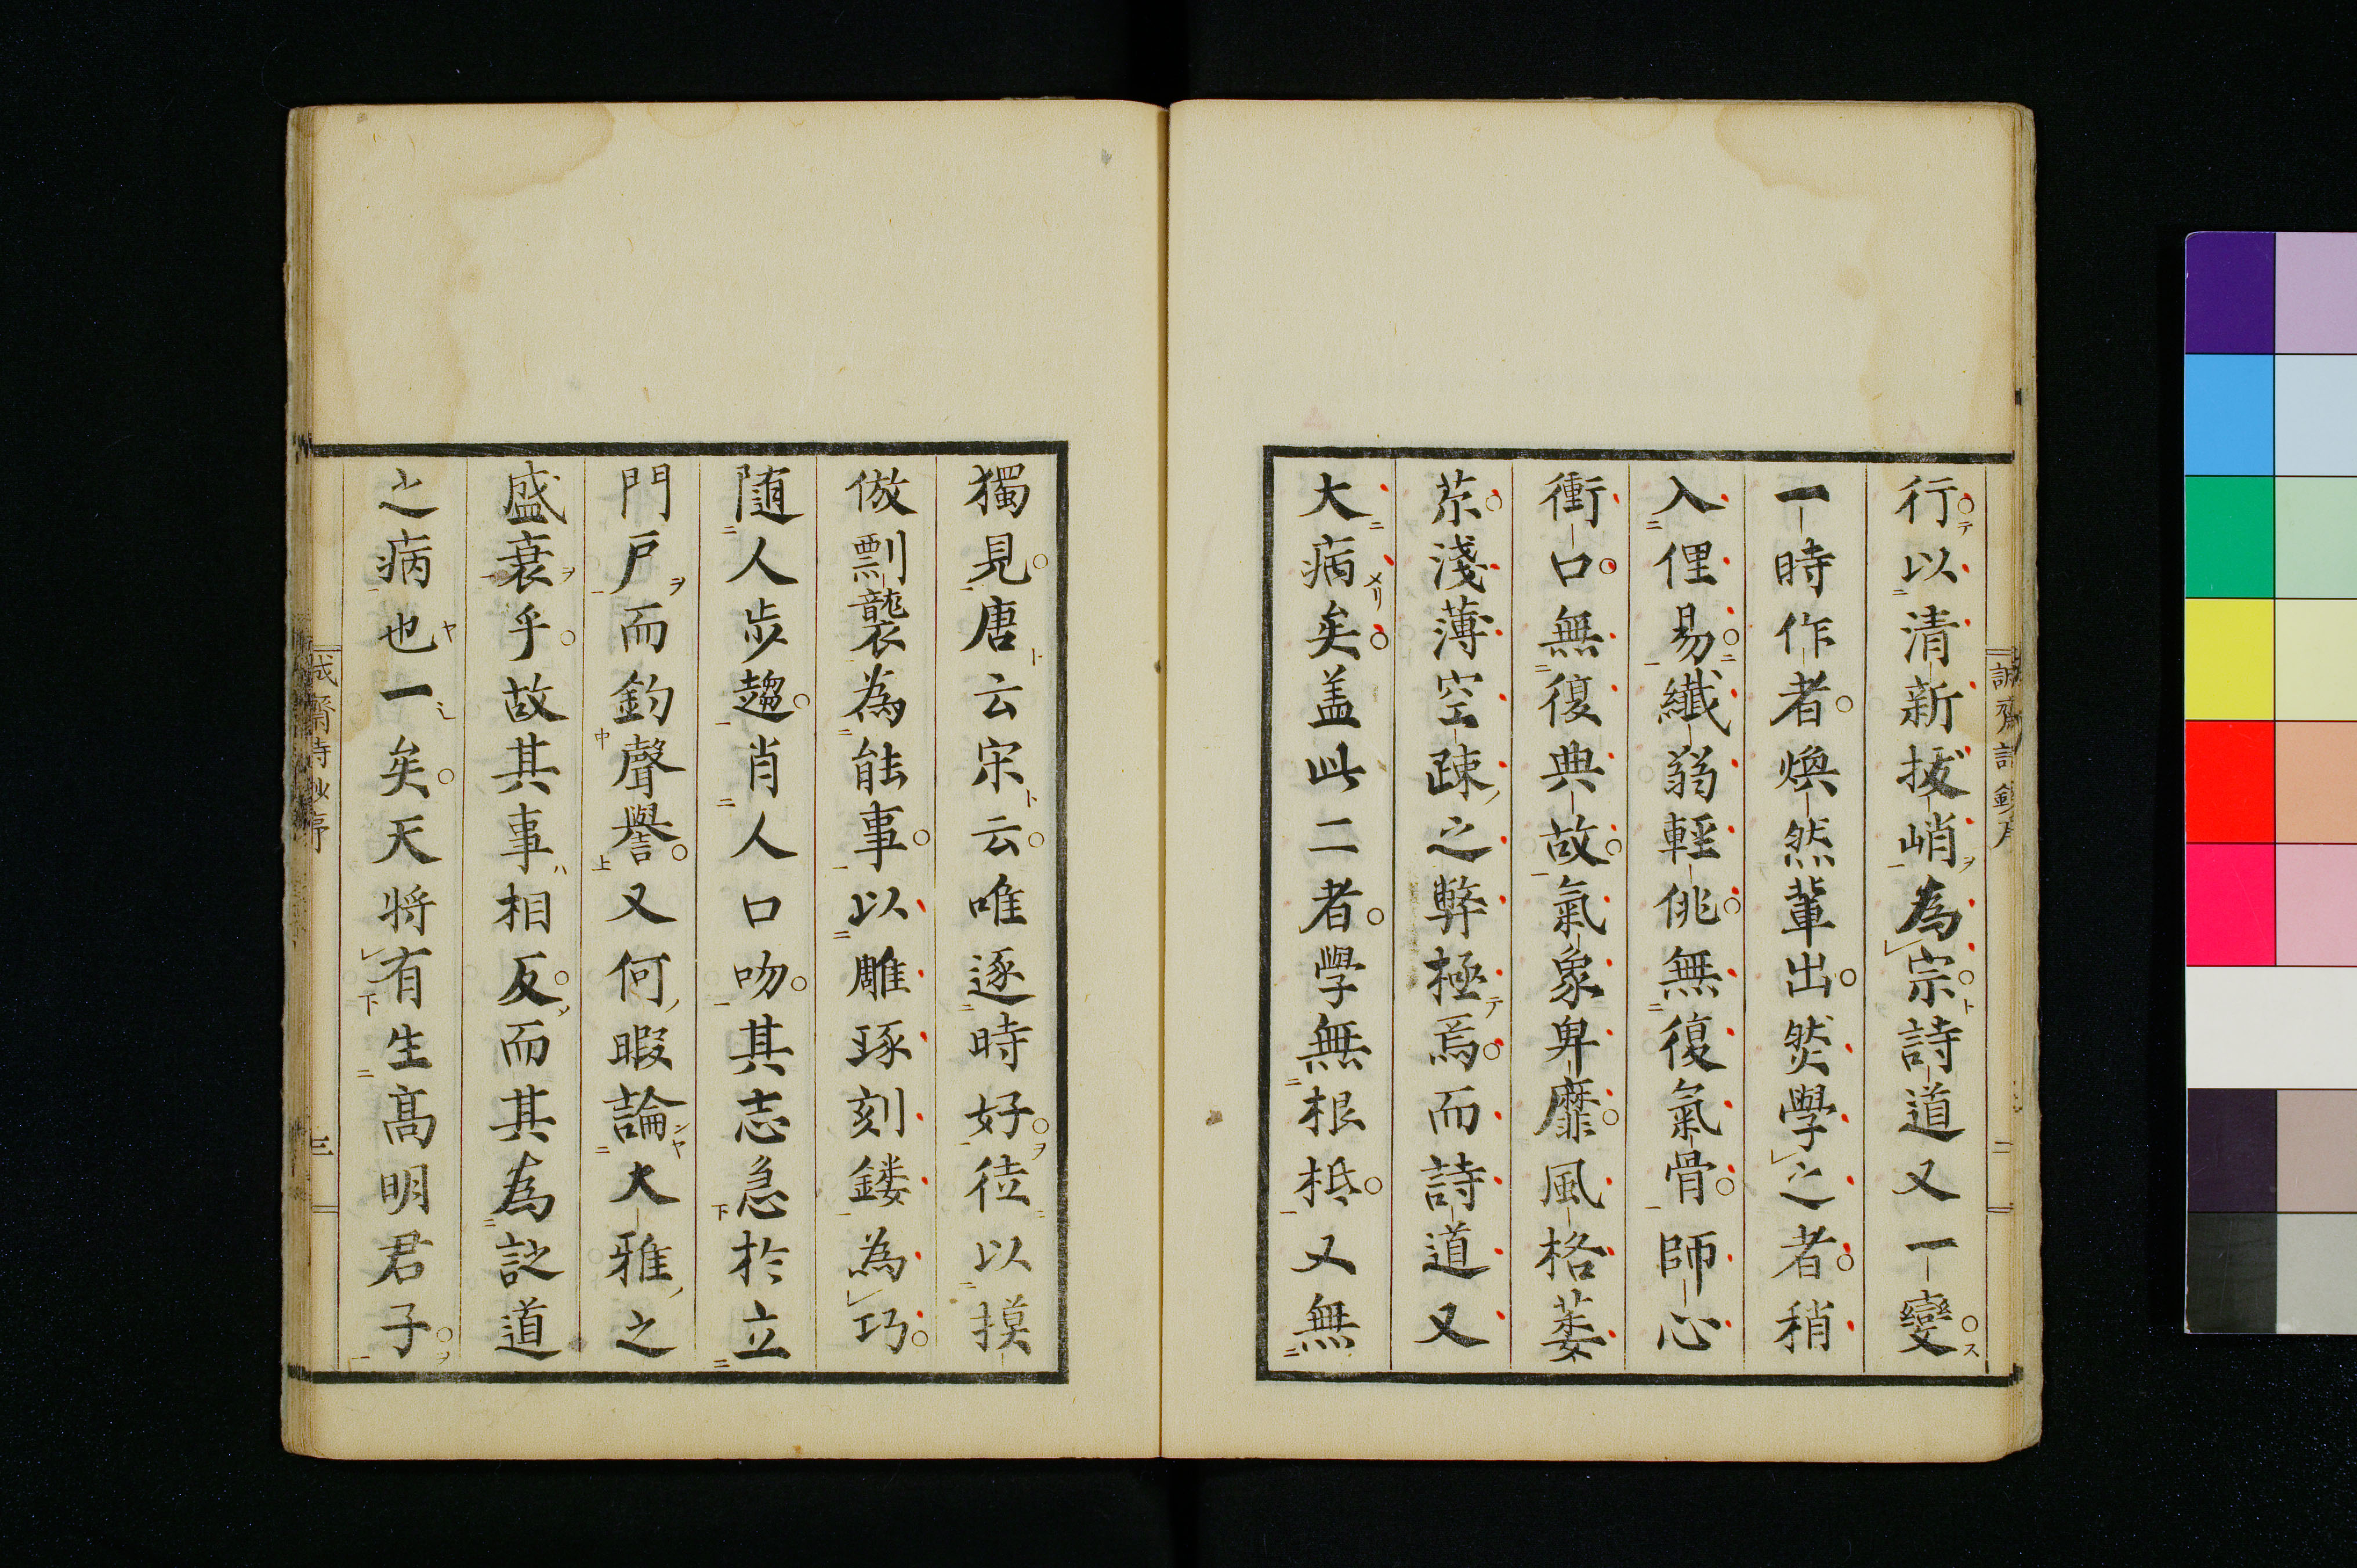 行以清新拔峭為宗詩道又一變
一時作者煥然輩出然學之者稍
入俚易纖弱輕佻無復氣骨師心
衝口無復典故氣象卑靡風格萎
苶淺薄空疎之弊極焉而詩道又
大病矣盖此二者學無根柢又無
獨見唐云宋云唯逐時好徒以摸
倣剽襲為能事以雕琢刻鏤為巧
随人步趨肖人口吻其志急於立
門戸而釣聲譽又何暇論大雅之
盛衰乎故其事相反而其為詩道
之病也一矣天将有生髙明君子
誠齋詩鈔序
二
三